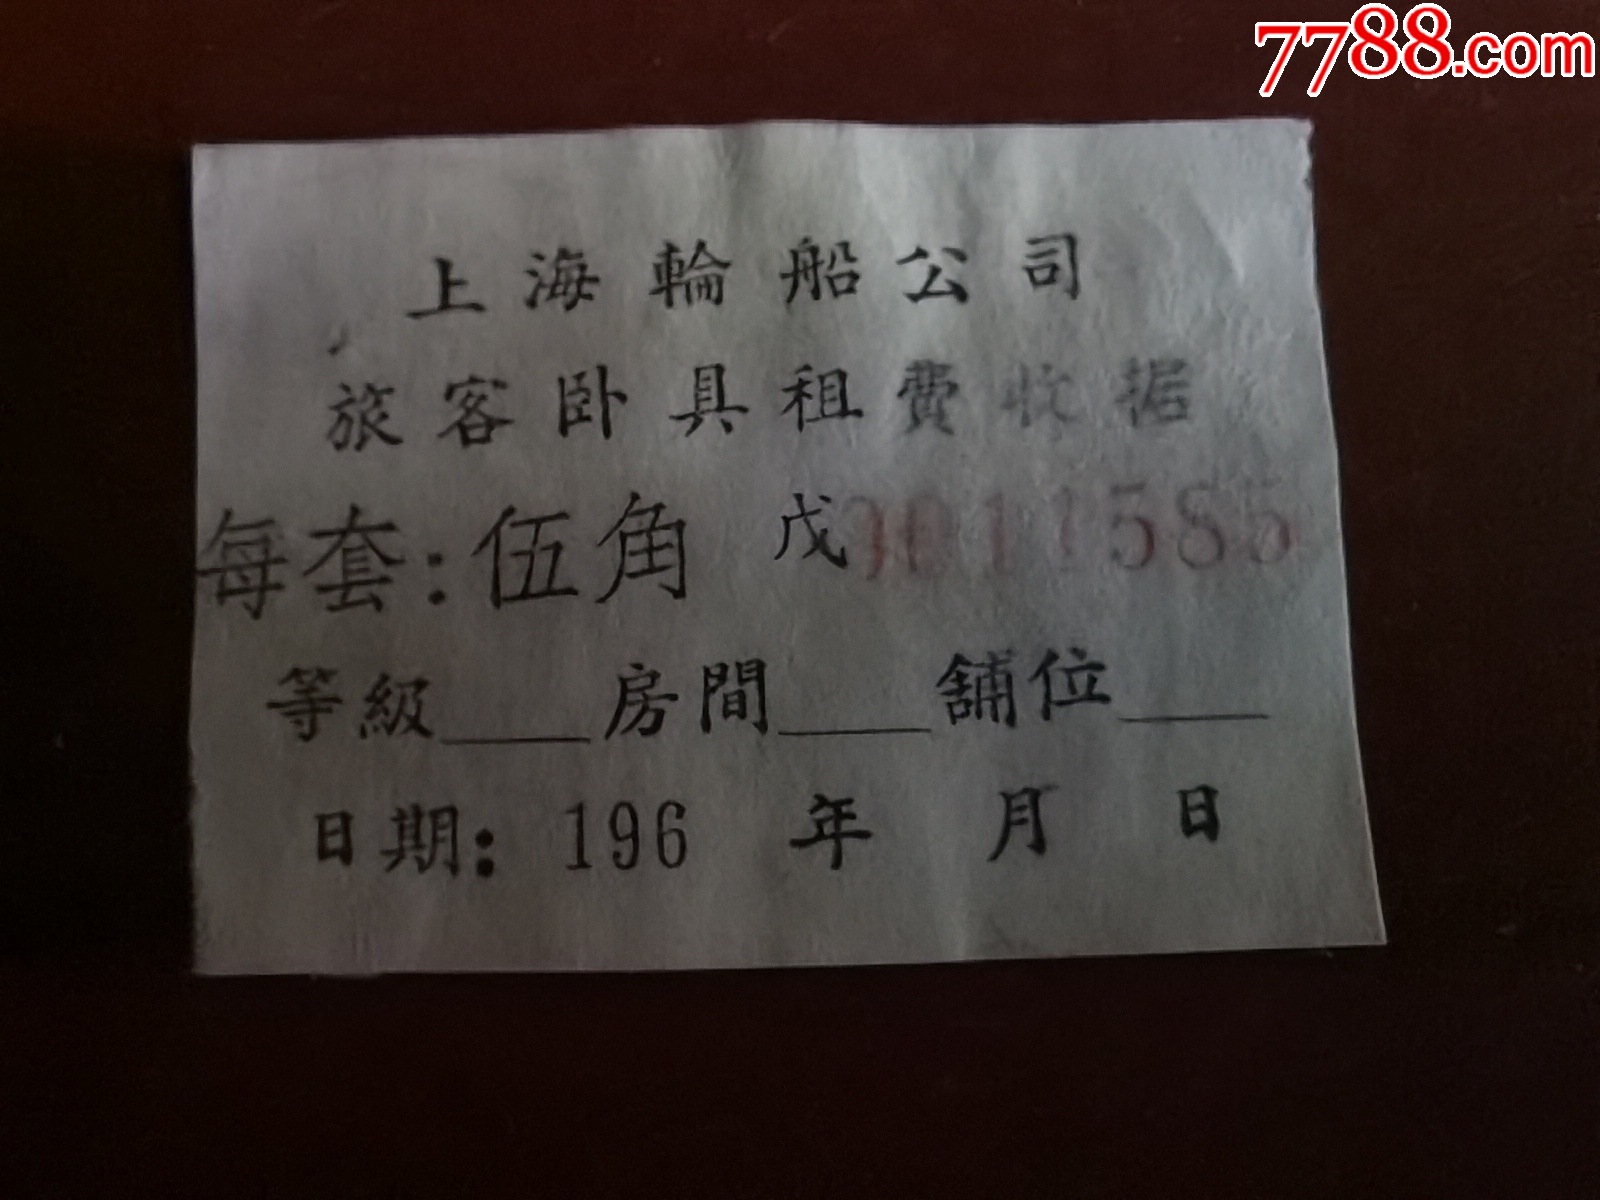 7788.com
上海輪船公司
旅客卧具租費收据
每套:伍角 戊0011585
等級____房間____舖位____
日期:196 年 月 日